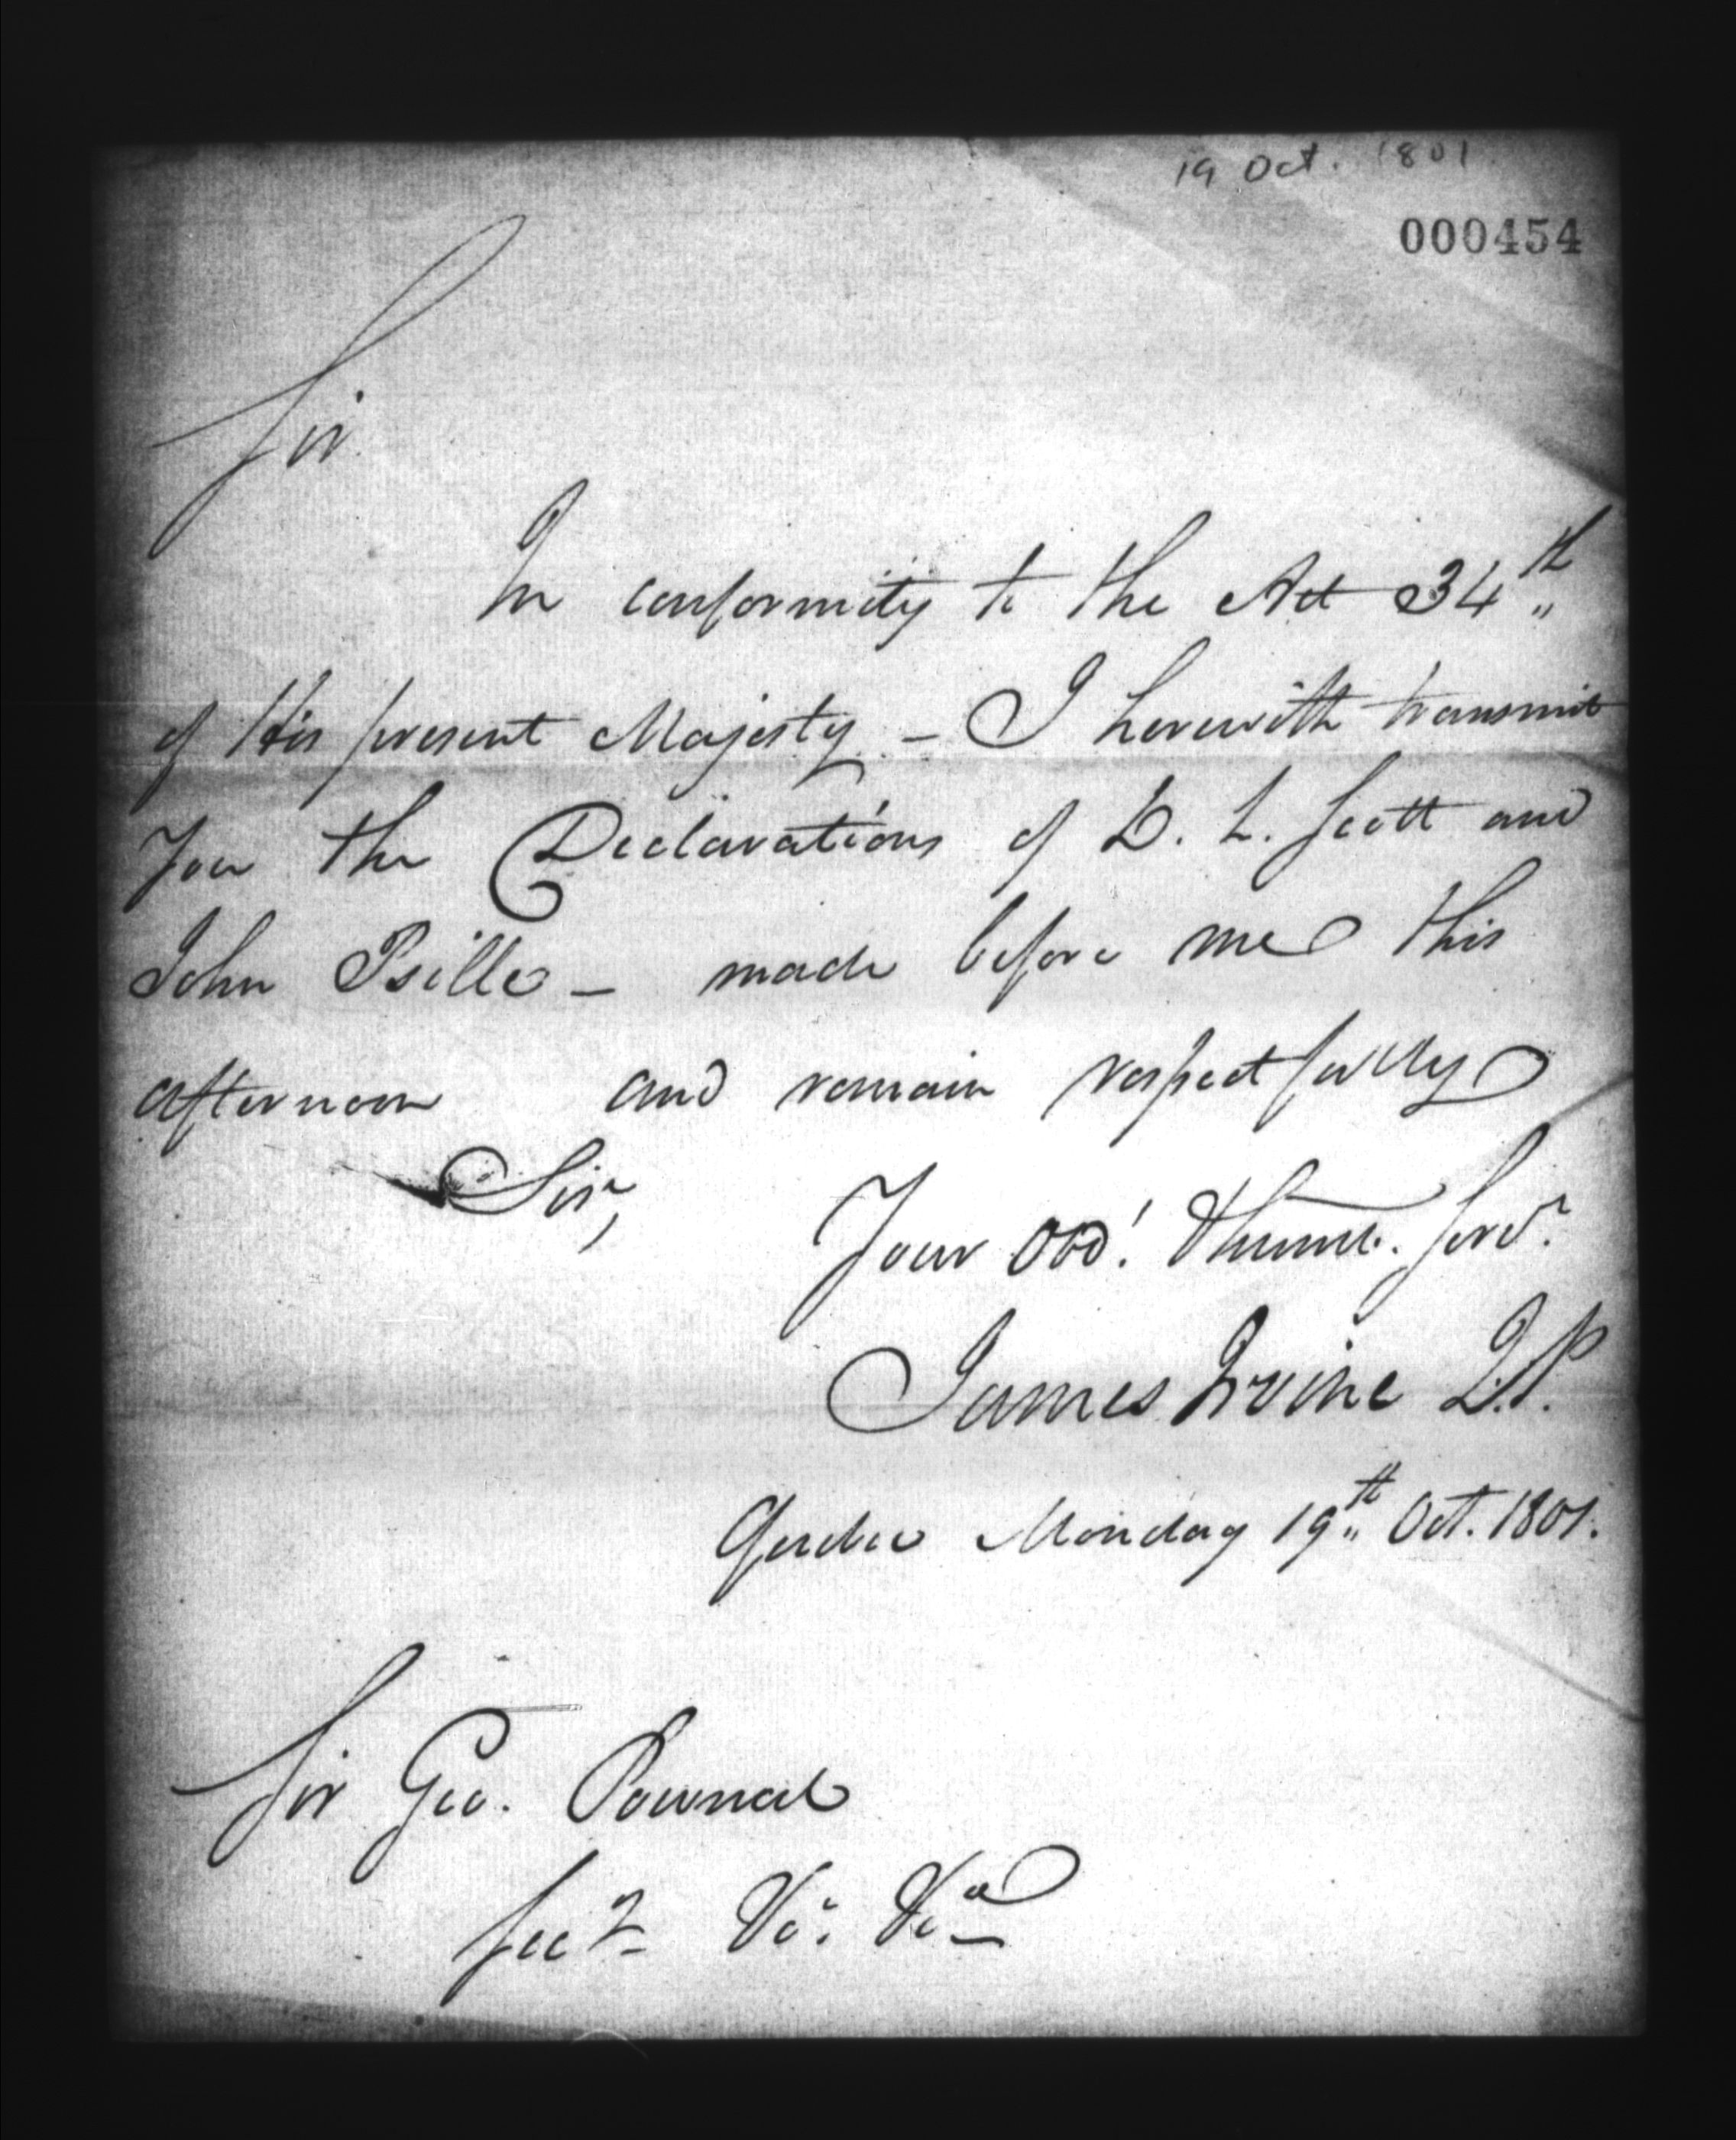 19 Oct. 1801
000454
Sir
In conformity to the Act 34th
of His present Majesty - I herewith transmit
You the Declarations of D. L. Scott and
John - made before me this
afternoon and remain respectfully
Sir,
Your Obd! Humb. Serv.
James Irvine J.P.
Quebec Monday 19th Oct. 1801.
Sir Geo. Pownal
Secy &c: &ca